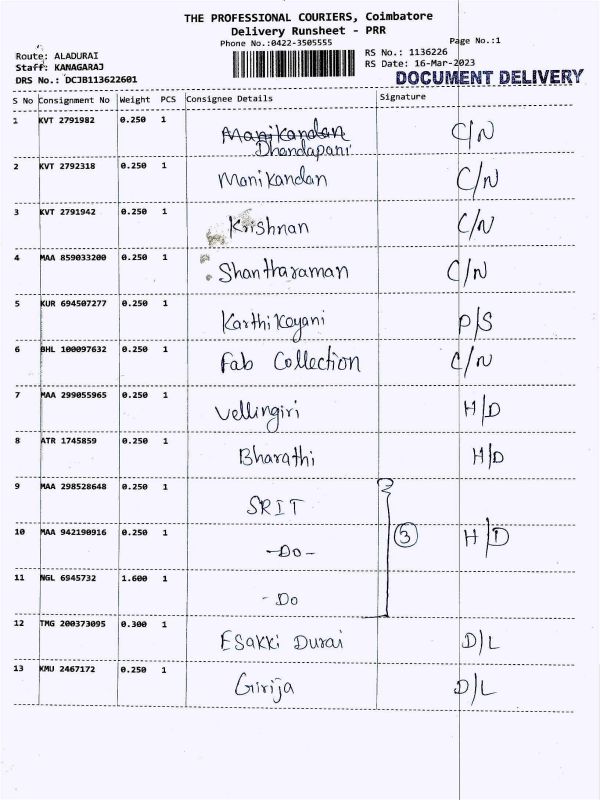 THE PROFESSIONAL COURIERS, Coimbatore
Delivery Runsheet - PRR
Phone No.:0422-3505555
Page No.:1
Route: ALADURAI
Staff: KANAGARAJ
DRS No.: DCJB113622601
RS No.: 1136226
RS Date: 16-Mar-2023
DOCUMENT DELIVERY
S No Consignment No Weight PCS Consignee Details Signature
1 KVT 2791982 0.250 1 Manikandan C/N
Dhandapani
2 KVT 2792318 0.250 1 Manikandan C/N
3 KVT 2791942 0.250 1 Krishnan C/N
4 MAA 859033200 0.250 1 Shantharaman C/N
5 KUR 694507277 0.250 1 Karthikeyani P/S
6 BHL 100097632 0.250 1 Fab Collection C/N
7 MAA 299055965 0.250 1 Vellingiri H/D
8 ATR 1745859 0.250 1 Bharathi H/D
9 MAA 298528648 0.250 1 SRIT
10 MAA 942190916 0.250 1 -Do- 3 H/D
11 NGL 6945732 1.600 1 - Do
12 TMG 200373095 0.300 1 Esakki Durai D/L
13 KMU 2467172 0.250 1 Girija D/L